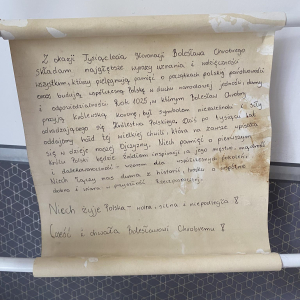 Z okazji Tysiąclecia Koronacji Bolesława Chrobrego
składam najgłębsze wyrazy uznania i wdzięczności
wszystkim, którzy pielęgnują pamięć o początkach polskiej państwowości
oraz budują współczesną Polskę w duchu narodowej jedności, dumy
i odpowiedzialności. Rok 1025, w którym Bolesław Chrobry
przyjął królewską koronę, był symbolem niezależności i siły
odradzającego się Królestwa Polskiego. Dziś po tysiącu lat
oddajemy hołd tej wielkiej chwili, która na zawsze wpisała
się w dzieje naszej Ojczyzny. Niech pamięć o pierwszym
królu Polski będzie źródłem inspiracji, a jego męstwo, mądrość
i dalekowzroczność - wzorem dla współczesnych pokoleń.
Niech łączy nas duma z historii, troska o wspólne
dobro i wiara w przyszłość Rzeczypospolitej.
Niech żyje Polska - wolna, silna i niepodległa!
Cześć i chwała Bolesławowi Chrobremu!